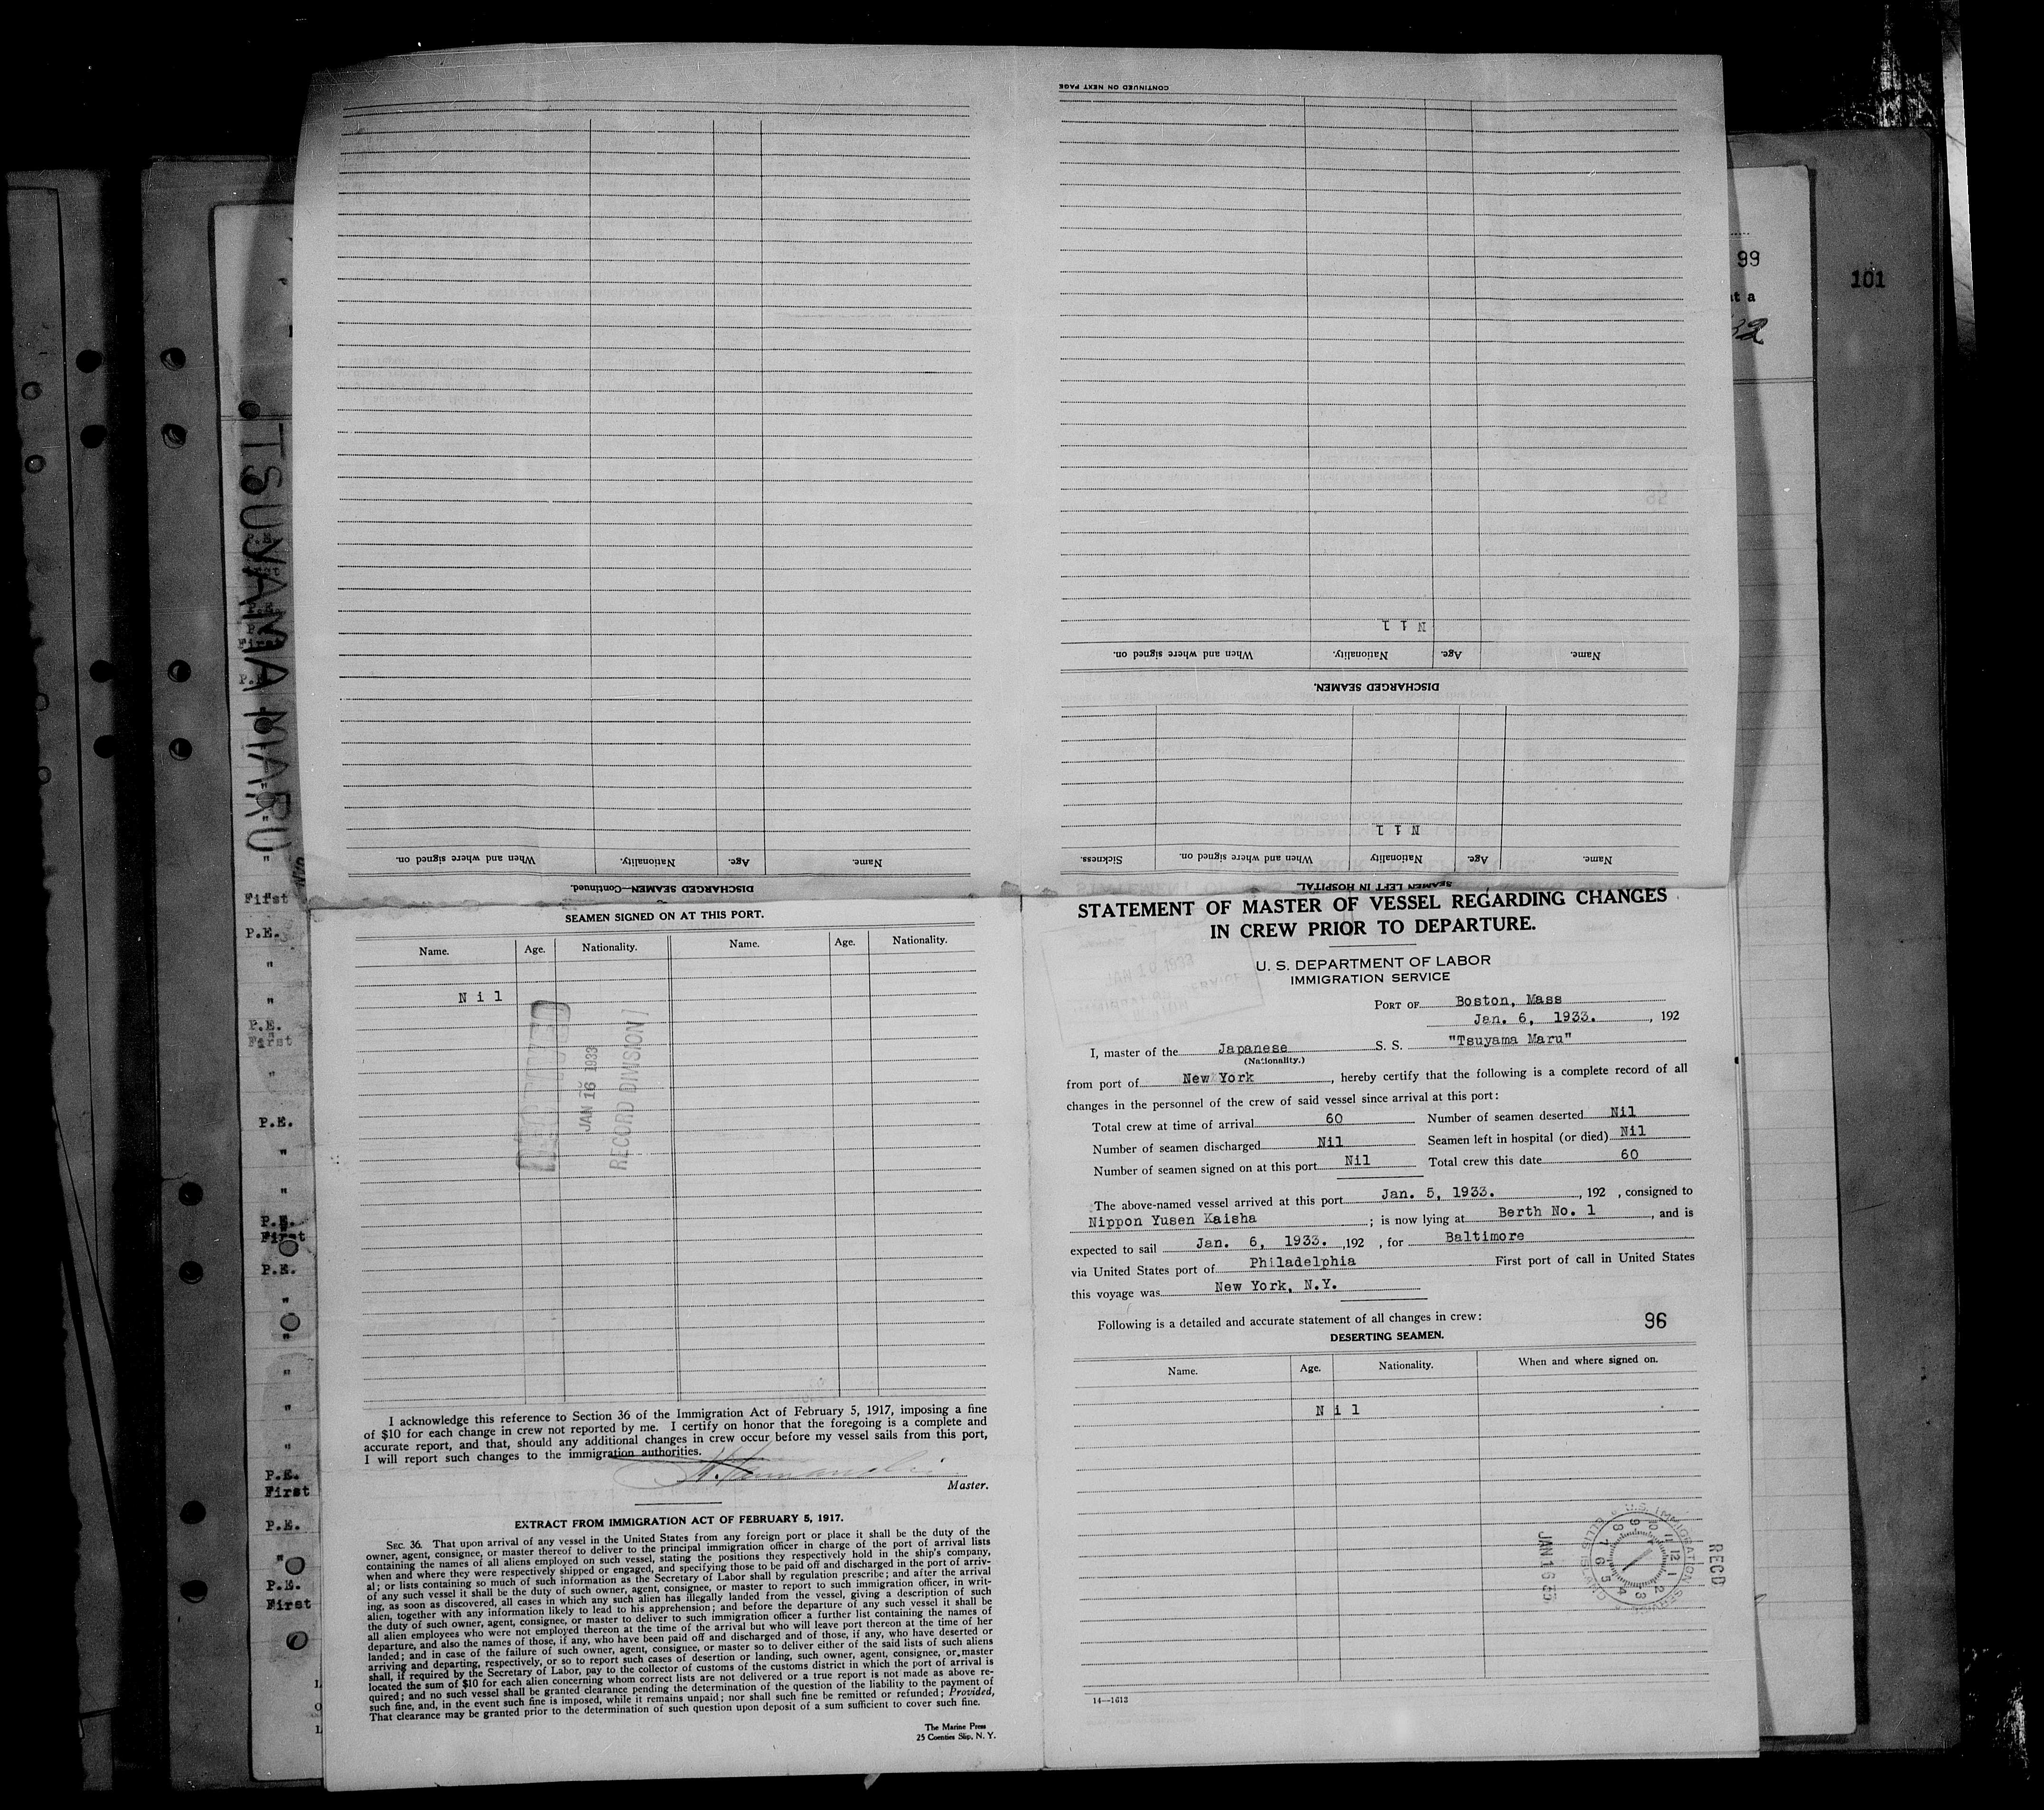 CONTINUED ON NEXT PAGE
N i l
Name. Age. Nationality. When and where signed on.
DISCHARGED SEAMEN.
N i l
Name. Age. Nationality When and where signed on. Sickness.
SEAMEN LEFT IN HOSPITAL.
Name. Age. Nationality. When and where signed on.
DISCHARGED SEAMEN—Continued.
99
101
t a
32
TSUYAMA MARU
P.E.
First
P.E.
"
"
P.E.
First
"
P.E.
"
"
P.E.
First
P.E.
"
"
"
"
"
P.E.
First
P.E.
"
P.E.
First
SEAMEN SIGNED ON AT THIS PORT.
Name. Age. Nationality. Name. Age. Nationality.
N i l
JAN 16 1933
RECORD DIVISION
I acknowledge this reference to Section 36 of the Immigration Act of February 5, 1917, imposing a fine
of $10 for each change in crew not reported by me. I certify on honor that the foregoing is a complete and
accurate report, and that, should any additional changes in crew occur before my vessel sails from this port,
I will report such changes to the immigration authorities.
Master.
EXTRACT FROM IMMIGRATION ACT OF FEBRUARY 5, 1917.
SEC. 36. That upon arrival of any vessel in the United States from any foreign port or place it shall be the duty of the
owner, agent, consignee, or master thereof to deliver to the principal immigration officer in charge of the port of arrival lists
containing the names of all aliens employed on such vessel, stating the positions they respectively hold in the ship's company,
when and where they were respectively shipped or engaged, and specifying those to be paid off and discharged in the port of arriv-
al; or lists containing so much of such information as the Secretary of Labor shall by regulation prescribe; and after the arrival
of any such vessel it shall be the duty of such owner, agent, consignee, or master to report to such immigration officer, in writ-
ing, as soon as discovered, all cases in which any such alien has illegally landed from the vessel, giving a description of such
alien, together with any information likely to lead to his apprehension; and before the departure of any such vessel it shall be
the duty of such owner, agent, consignee, or master to deliver to such immigration officer a further list containing the names of
all alien employees who were not employed thereon at the time of the arrival but who will leave port thereon at the time of her
departure, and also the names of those, if any, who have been paid off and discharged and of those, if any, who have deserted or
landed; and in case of the failure of such owner, agent, consignee, or master so to deliver either of the said lists of such aliens
arriving and departing, respectively, or so to report such cases of desertion or landing, such owner, agent, consignee, or master
shall, if required by the Secretary of Labor, pay to the collector of customs of the customs district in which the port of arrival is
located the sum of $10 for each alien concerning whom correct lists are not delivered or a true report is not made as above re-
quired; and no such vessel shall be granted clearance pending the determination of the question of the liability to the payment of
such fine, and, in the event such fine is imposed, while it remains unpaid; nor shall such fine be remitted or refunded; Provided,
That clearance may be granted prior to the determination of such question upon deposit of a sum sufficient to cover such fine.
The Marine Press
25 Coenties Slip, N. Y.
STATEMENT OF MASTER OF VESSEL REGARDING CHANGES
IN CREW PRIOR TO DEPARTURE.
JAN 10 1933
U. S. DEPARTMENT OF LABOR
IMMIGRATION SERVICE
PORT OF Boston, Mass
Jan. 6, 1933. , 192
I, master of the Japanese S. S. "Tsuyama Maru"
(Nationality.)
from port of New York , hereby certify that the following is a complete record of all
changes in the personnel of the crew of said vessel since arrival at this port:
Total crew at time of arrival 60 Number of seamen deserted Nil
Number of seamen discharged Nil Seamen left in hospital (or died) Nil
Number of seamen signed on at this port Nil Total crew this date 60
The above-named vessel arrived at this port Jan. 5, 1933. , 192 , consigned to
Nippon Yusen Kaisha ; is now lying at Berth No. 1 , and is
expected to sail Jan. 6, 1933. ,192 , for Baltimore
via United States port of Philadelphia First port of call in United States
this voyage was New York, N.Y.
Following is a detailed and accurate statement of all changes in crew:
96
DESERTING SEAMEN.
Name. Age. Nationality. When and where signed on.
N i l
RECD
U.S. IMMIGRATION SERVICE
ELLIS ISLAND
12 1 2 3 4 5 6 7 8 9 10 11
JAN 16
14—1613